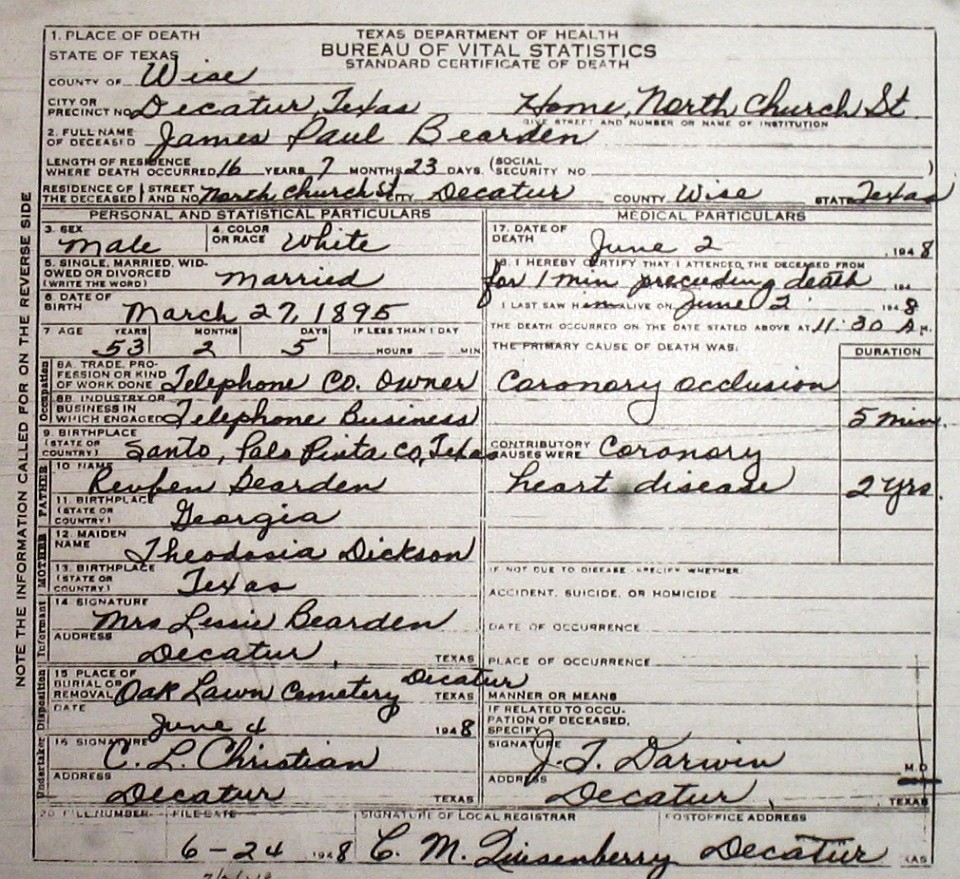 1. PLACE OF DEATH TEXAS DEPARTMENT OF HEALTH
STATE OF TEXAS BUREAU OF VITAL STATISTICS
STANDARD CERTIFICATE OF DEATH
COUNTY OF Wise
CITY OR PRECINCT NO. Decatur, Texas Home, North Church St.
GIVE STREET AND NUMBER OR NAME OF INSTITUTION
2. FULL NAME OF DECEASED James Paul Bearden
LENGTH OF RESIDENCE WHERE DEATH OCCURRED 16 YEARS 7 MONTHS 23 DAYS. (SOCIAL SECURITY NO. )
RESIDENCE OF THE DECEASED STREET AND NO. North Church St. CITY Decatur COUNTY Wise STATE Texas
PERSONAL AND STATISTICAL PARTICULARS
3. SEX Male 4. COLOR OR RACE White
5. SINGLE, MARRIED, WIDOWED OR DIVORCED (WRITE THE WORD) Married
6. DATE OF BIRTH March 27, 1895
7 AGE YEARS MONTHS DAYS IF LESS THAN 1 DAY
53 2 5 HOURS MIN.
Occupation
8A. TRADE, PROFESSION OR KIND OF WORK DONE Telephone Co. Owner
8B. INDUSTRY OR BUSINESS IN WHICH ENGAGED Telephone Business
9. BIRTHPLACE (STATE OR COUNTRY) Santo, Palo Pinta Co, Texas
FATHER
10 NAME Reuben Bearden
11. BIRTHPLACE (STATE OR COUNTRY) Georgia
MOTHER
12. MAIDEN NAME Theodosia Dickson
13. BIRTHPLACE (STATE OR COUNTRY) Texas
Informant
14. SIGNATURE Mrs Lessie Bearden
ADDRESS Decatur, TEXAS
Disposition
15 PLACE OF BURIAL OR REMOVAL Oak Lawn Cemetery Decatur TEXAS
DATE June 4 1948
Undertaker
16 SIGNATURE C. L. Christian
ADDRESS Decatur TEXAS
MEDICAL PARTICULARS
17. DATE OF DEATH June 2, 1948
18. I HEREBY CERTIFY THAT I ATTENDED THE DECEASED FROM
for 1 min preceeding death 194
I LAST SAW HIM ALIVE ON June 2 1948
THE DEATH OCCURRED ON THE DATE STATED ABOVE AT 11:30 A.M.
THE PRIMARY CAUSE OF DEATH WAS: DURATION
Coronary occlusion
5 min.
CONTRIBUTORY CAUSES WERE Coronary
heart disease 2 yrs.
IF NOT DUE TO DISEASE, SPECIFY WHETHER:
ACCIDENT, SUICIDE, OR HOMICIDE
DATE OF OCCURRENCE
PLACE OF OCCURRENCE
MANNER OR MEANS
IF RELATED TO OCCUPATION OF DECEASED, SPECIFY
SIGNATURE J. T. Darwin M.D.
ADDRESS Decatur, TEXAS
20 FILE NUMBER FILE DATE SIGNATURE OF LOCAL REGISTRAR POSTOFFICE ADDRESS
6-24 1948 C. M. Quisenberry Decatur
NOTE THE INFORMATION CALLED FOR ON THE REVERSE SIDE